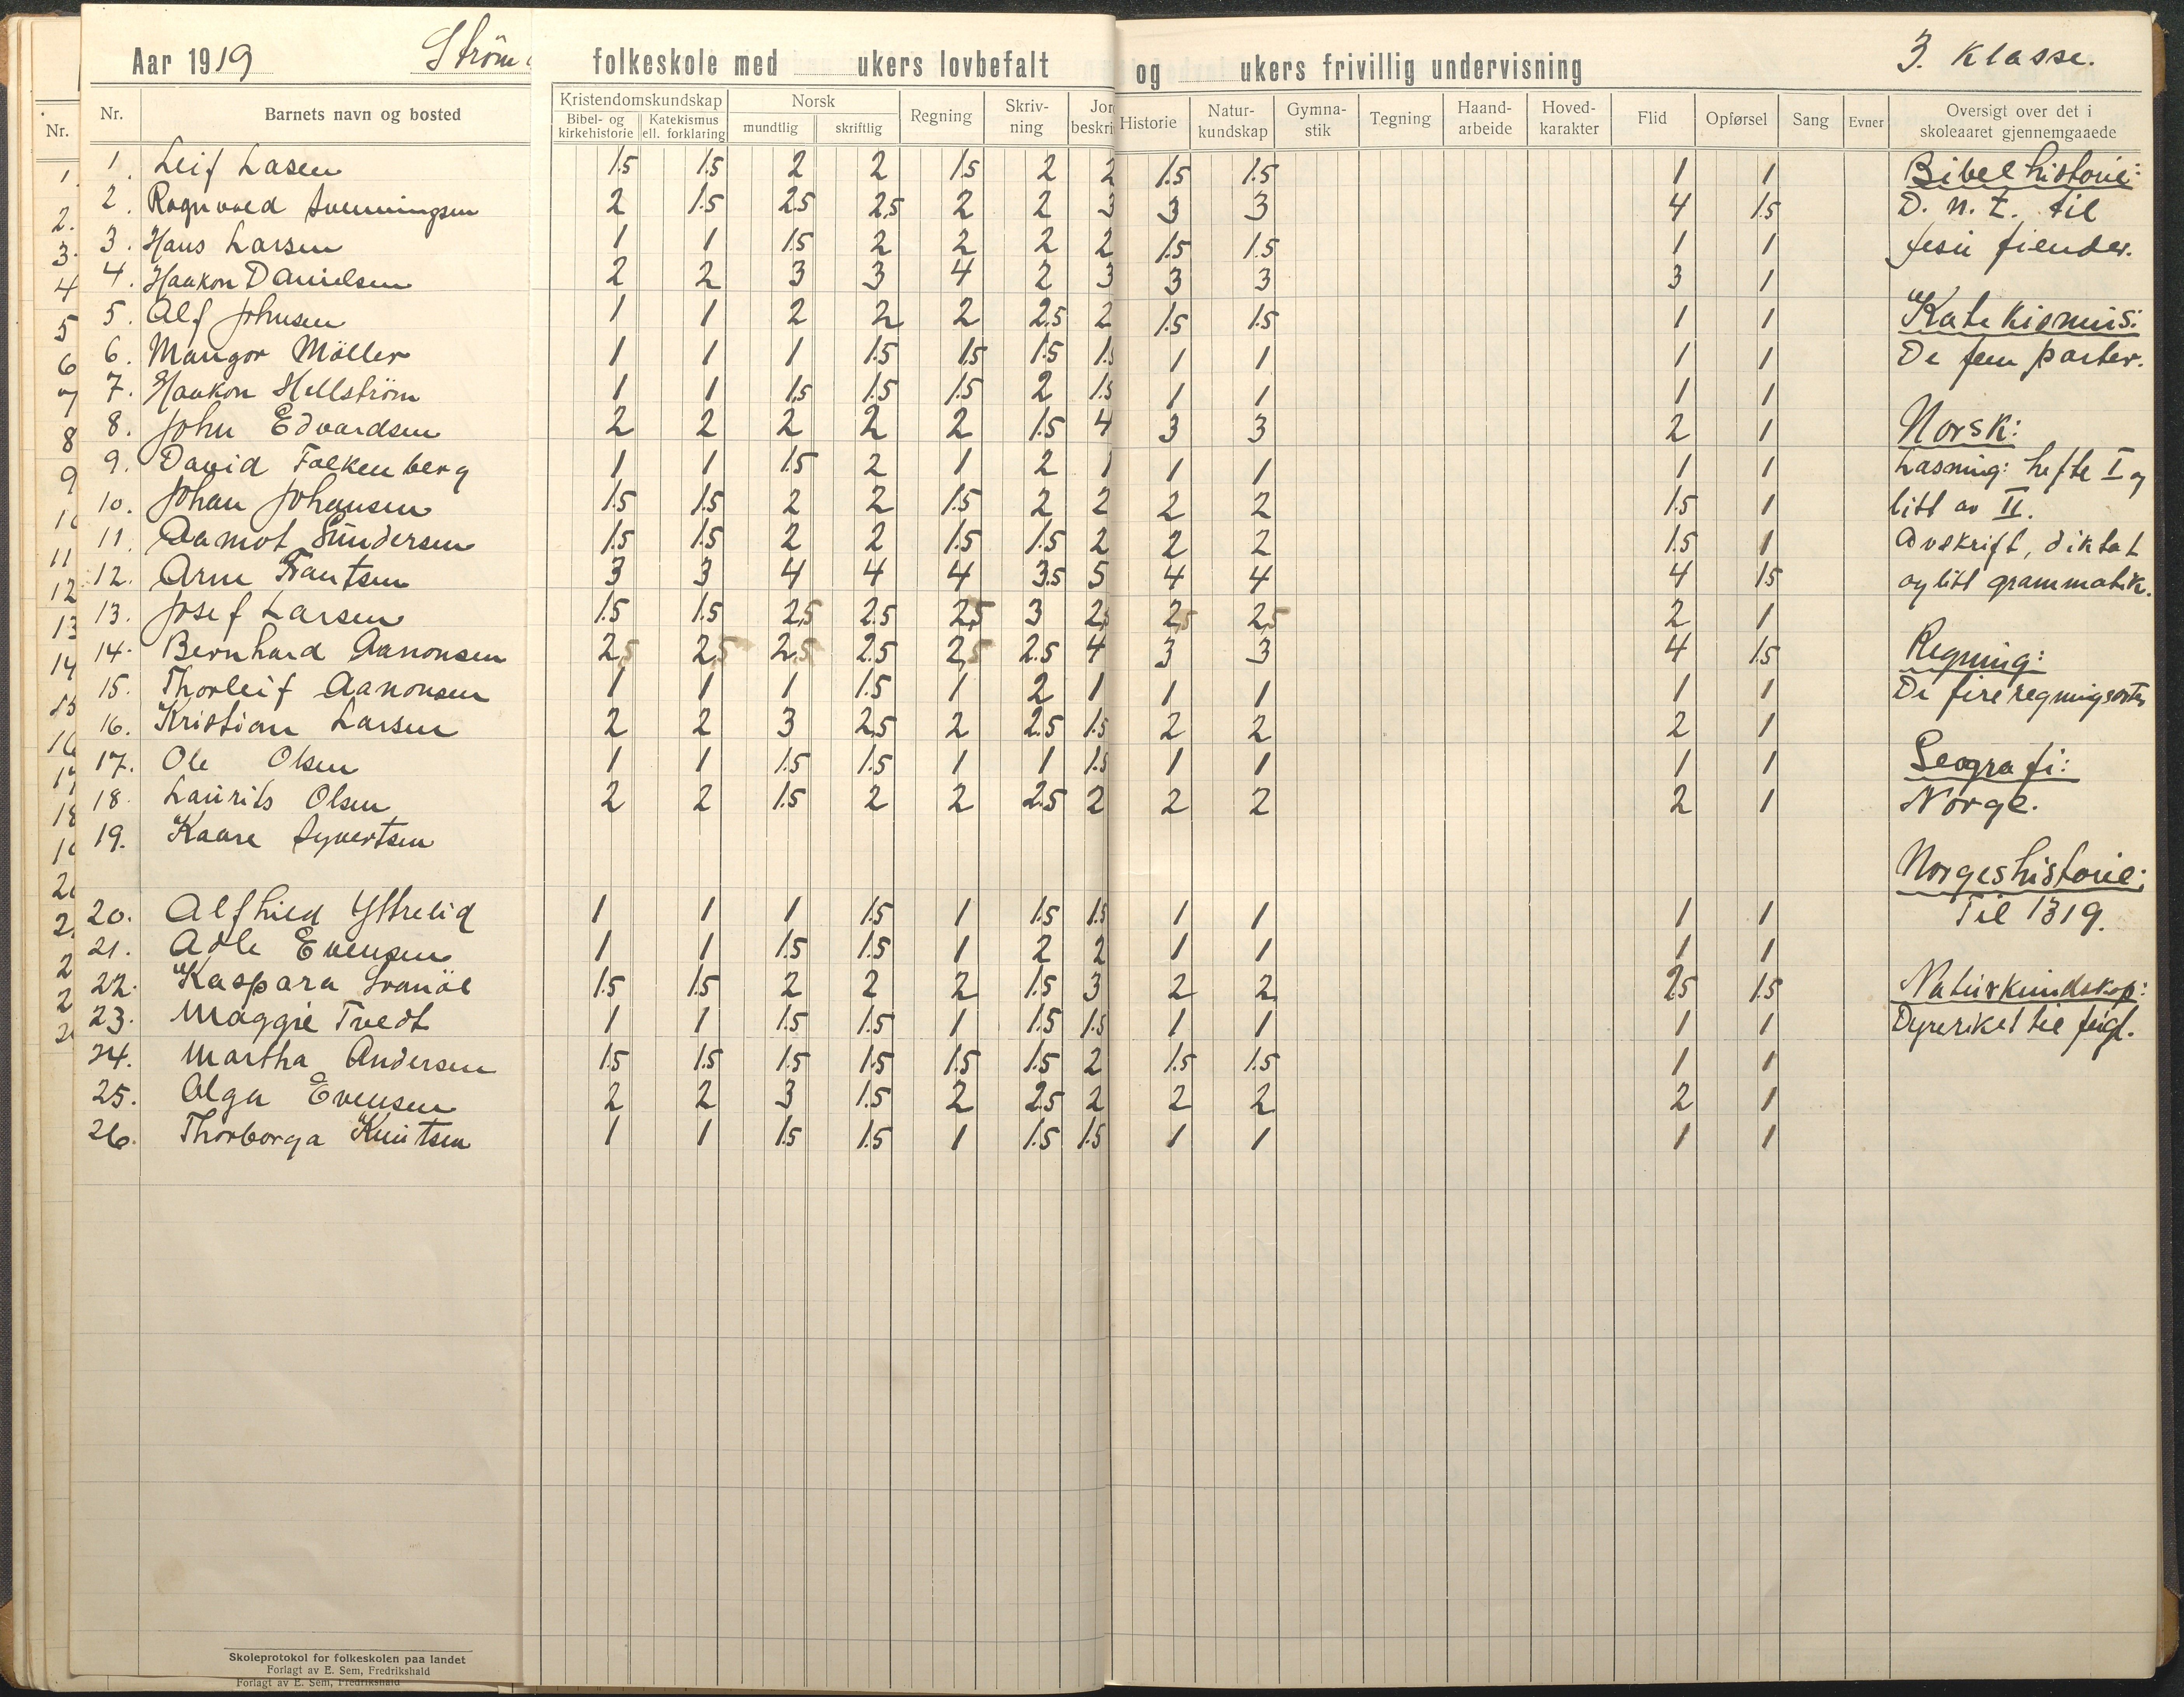 Aar 1919 Strøm folkeskole med ukers lovbefalt og ukers frivillig undervisning 3. Klasse.
Nr. Nr. Barnets navn og bosted Kristendomskundskap Bibel- og kirkehistorie Katekismus ell. forklaring Norsk mundtlig skriftlig Regning Skriv-ning Jor beskri Historie Natur-kundskap Gymna-stik Tegning Haand-arbeide Hoved-karakter Flid Opførsel Sang Evner Oversigt over det i skoleaaret gjennemgaaede
1. 1. Leif Lasen 1.5 1.5 2 2 1.5 2 2 1.5 1.5 1 1 Bibelhistorie:
2. 2. Ragnvald Svenningsen 2 1.5 2.5 2.5 2 2 3 3 3 4 1.5 D. n. t. til
3. 3. Hans Larsen 1 1 1.5 2 2 2 2 1.5 1.5 1 1 Jesu fiender.
4 4. Haakon Danielsen 2 2 3 3 4 2 3 3 3 3 1
5 5. Alf Johnsen 1 1 2 2 2 2.5 2 1.5 1.5 1 1 Katekismus:
6 6. Mangor Möller 1 1 1 1.5 1.5 1.5 1.5 1 1 1 1 De fem parter.
7 7. Haakon Hellström 1 1 1.5 1.5 1.5 2 1.5 1 1 1 1
8 8. John Edvardsen 2 2 2 2 2 1.5 4 3 3 2 1 Norsk:
9 9. David Falkenberg 1 1 1.5 2 1 2 1 1 1 1 1 Læsning: hefte I og
10. Johan Johansen 1.5 1.5 2 2 1.5 2 2 2 2 1.5 1 litt av II.
11 11. Aamot Gundersen 1.5 1.5 2 2 1.5 1.5 2 2 2 1.5 1 Avskrift, diktat
12 12. Arne Frantsen 3 3 4 4 4 3.5 5 4 4 4 1.5 og litt grammatik.
13 13. Josef Larsen 1.5 1.5 2.5 2.5 2.5 3 2.5 2.5 2.5 2 1
14 14. Bernhard Aanonsen 2.5 2.5 2.5 2.5 2.5 2.5 4 3 3 4 1.5 Regning:
15 15. Thorleif Aanonsen 1 1 1 1.5 1 2 1 1 1 1 1 De fire regningsarter
16 16. Kristian Larsen 2 2 3 2.5 2 2.5 1.5 2 2 2 1
17 17. Ole Olsen 1 1 1.5 1.5 1 1 1.5 1 1 1 1 Geografi:
18 18. Laurits Olsen 2 2 1.5 2 2 2.5 2 2 2 2 1 Norge.
19. Kaare Syvertsen
Norgeshistorie:
20. Alfhild Yttrelid 1 1 1 1.5 1 1.5 1.5 1 1 1 1 Til 1319.
21. Adle Evensen 1 1 1.5 1.5 1 2 2 1 1 1 1
22. Kaspara 1.5 1.5 2 2 2 1.5 3 2 2 2.5 1.5 Naturkundskap:
23. Maggie Tvedt 1 1 1.5 1.5 1 1.5 1.5 1 1 1 1 Dyreriket til fugl.
24. Martha Andersen 1.5 1.5 1.5 1.5 1.5 1.5 2 1.5 1.5 1 1
25. Olga Evensen 2 2 3 1.5 2 2.5 2 2 2 2 1
26. Thorborga Knutsen 1 1 1.5 1.5 1 1.5 1.5 1 1 1 1
Skoleprotokol for folkeskolen paa landet
Forlagt av E. Sem, Fredrikshald
Forlagt av E. Sem, Fredrikshald